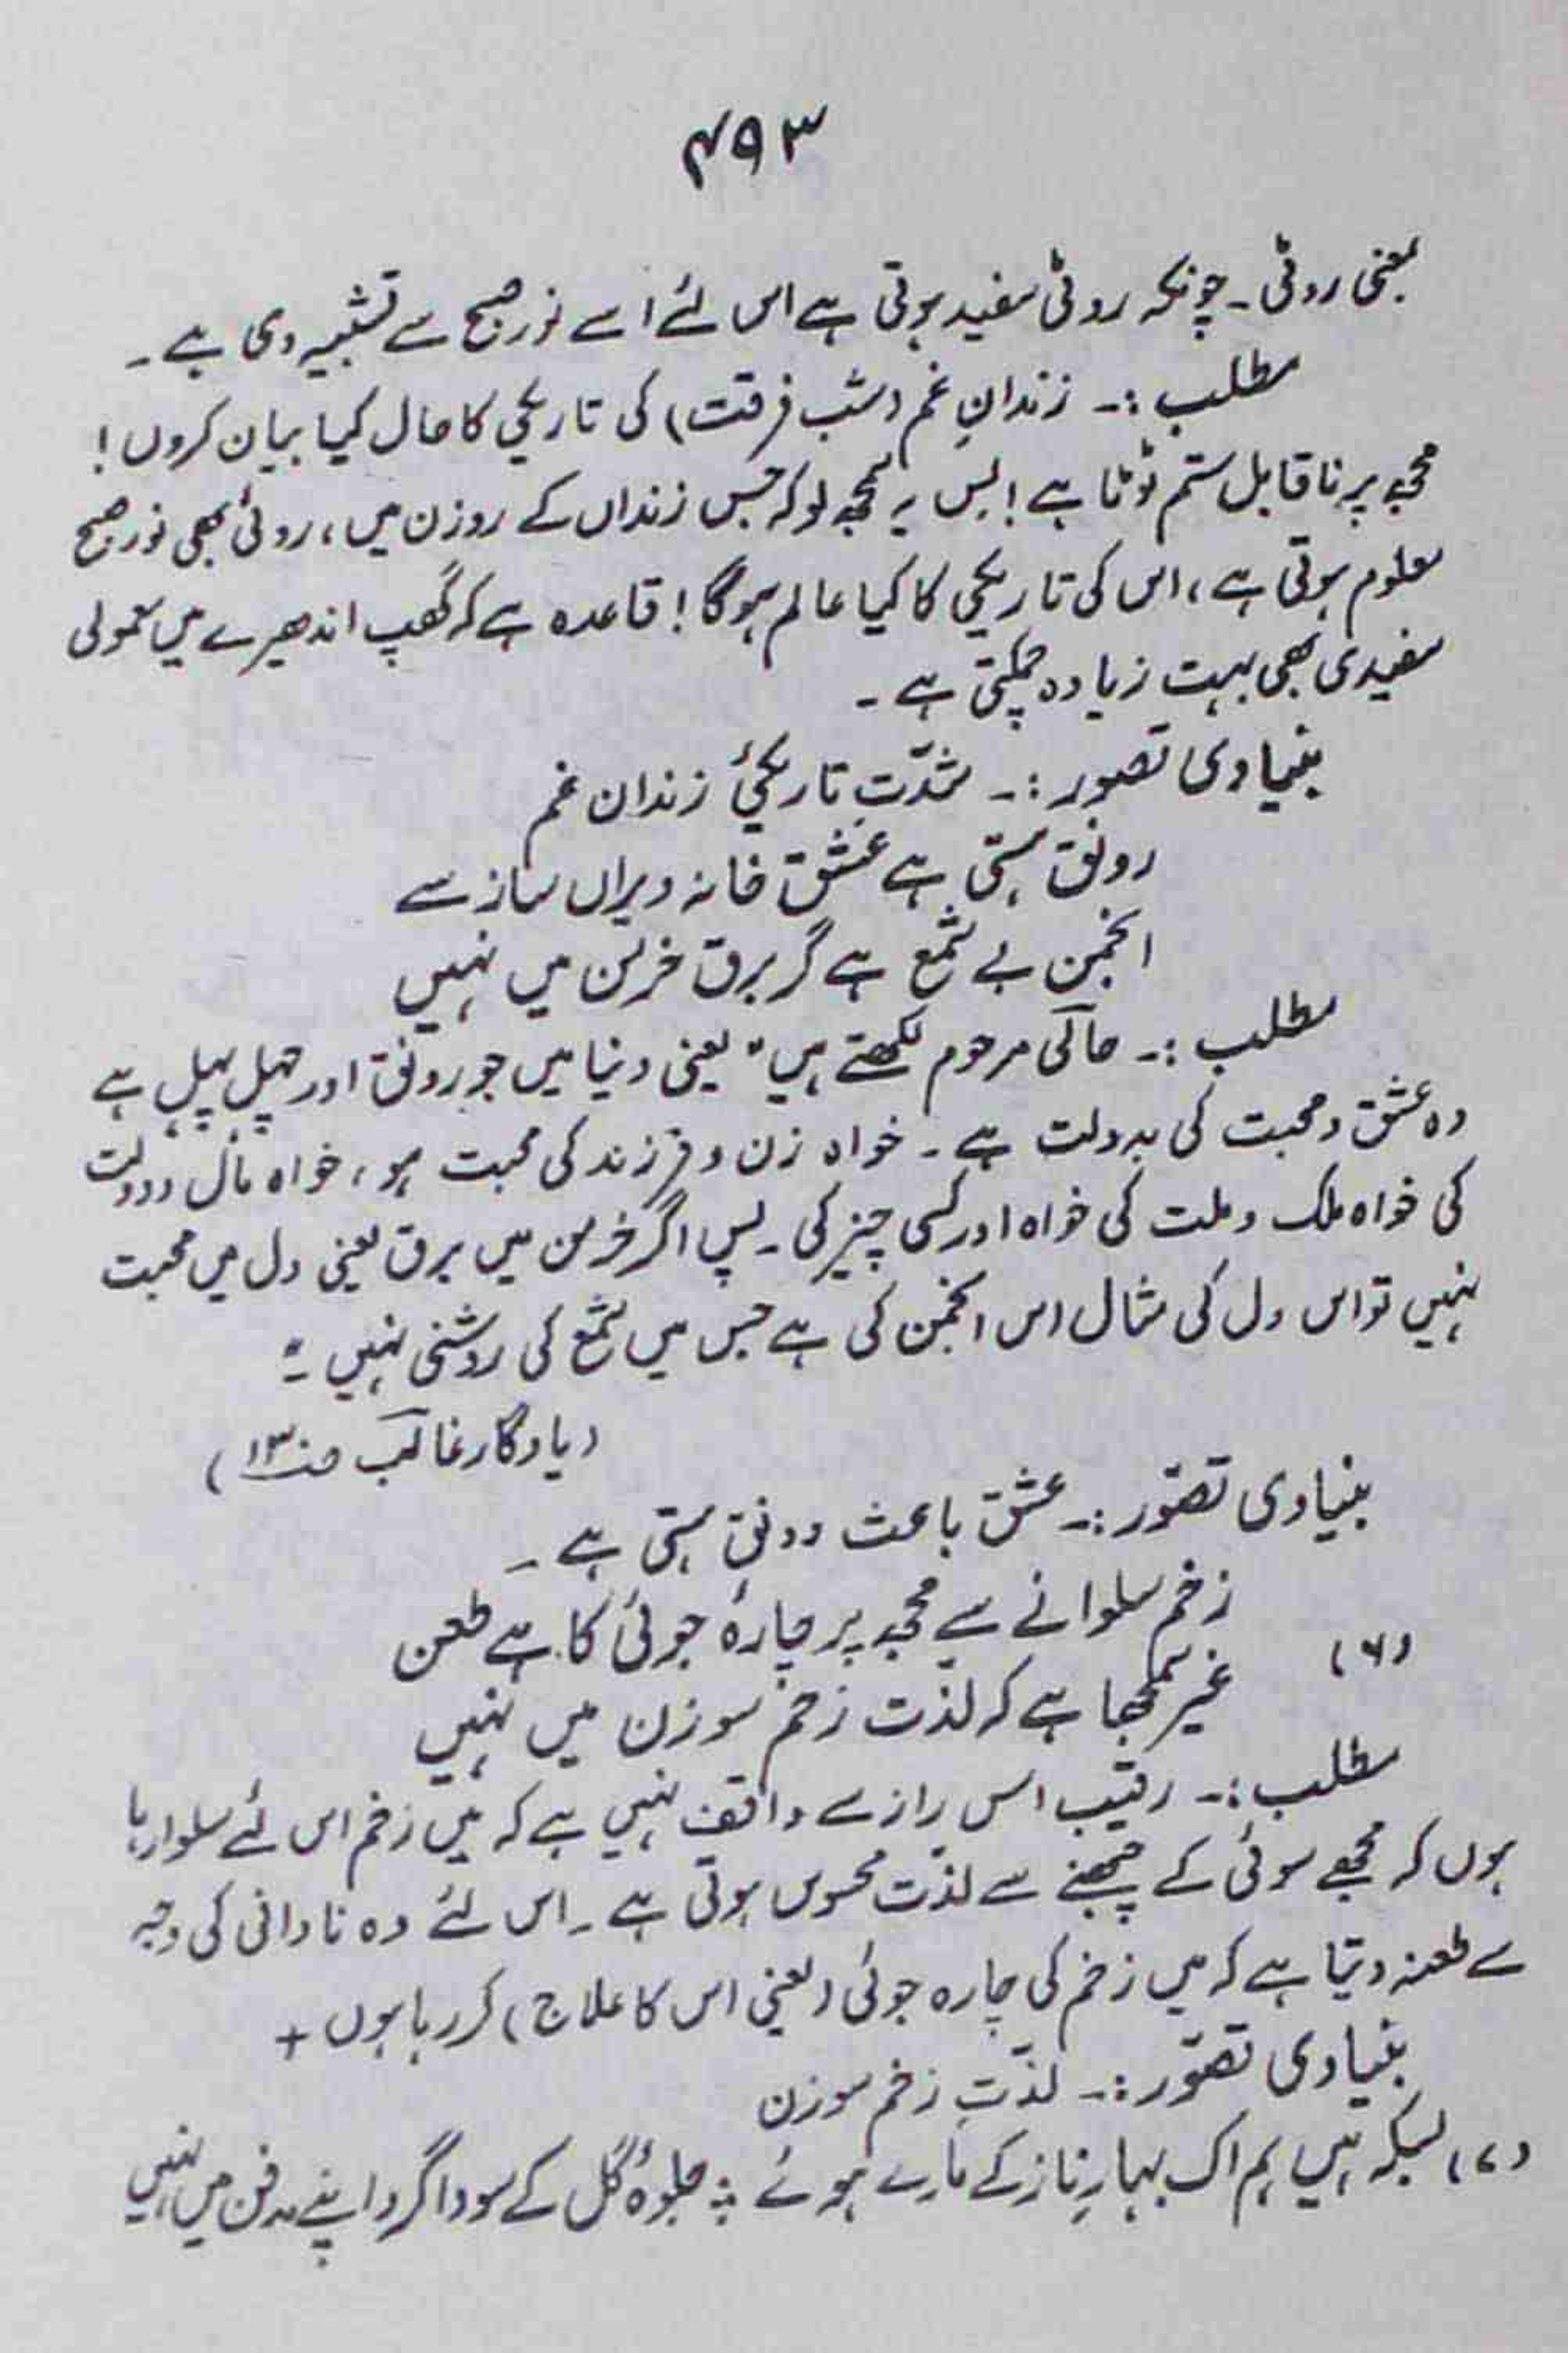 ۴۹۳
بمعنی روئی۔ چونکہ روئی سفید ہوتی ہے اس لئے اسے نورِ صبح سے تشبیہ دی ہے۔
مطلب :۔ زندانِ غم (شب فرقت) کی تاریکی کا حال کیا بیان کروں!
مجھ پر ناقابل ستم ٹوٹا ہے! بس یہ سمجھ لو کہ جس زنداں کے روزن میں، روئی بھی نور صبح
معلوم ہوتی ہے، اس کی تاریکی کا کیا عالم ہوگا! قاعدہ ہے کہ گھپ اندھیرے میں معمولی
سفیدی بھی بہت زیادہ چمکتی ہے۔
بنیادی تصور :۔ شدّتِ تاریکیٔ زندان غم
رونق ہستی ہے عشق خانہ ویراں ساز سے
انجمن بے شمع ہے گر برق خرمن میں نہیں
مطلب :۔ حالی مرحوم لکھتے ہیں "یعنی دنیا میں جو رونق اور چہل پہل ہے
وہ عشق و محبت کی بدولت ہے۔ خواہ زن و فرزند کی محبت ہو، خواہ مال و دولت
کی خواہ ملک و ملت کی خواہ اور کسی چیز کی۔ پس اگر خرمن میں برق یعنی دل میں محبت
نہیں تو اس دل کی مثال اس انجمن کی ہے جس میں شمع کی روشنی نہیں۔"
(یادگار غالب ص۱۳۰)
بنیادی تصوّر :۔ عشق باعث رونقِ ہستی ہے۔
زخم سلوانے سے مجھ پر چارۂ جوئی کا ہے طعن
(۶)
غیر سمجھا ہے کہ لذّت زخم سوزن میں نہیں
مطلب :۔ رقیب اس راز سے واقف نہیں ہے کہ میں زخم اس لئے سلوا رہا
ہوں کہ مجھے سوئی کے چبھنے سے لذّت محسوس ہوتی ہے۔ اس لئے وہ نادانی کی وجہ
سے طعنہ دیتا ہے کہ میں زخم کی چارہ جوئی (یعنی اس کا علاج) کر رہا ہوں +
بنیادی تصوّر :۔ لذّتِ زخم سوزن
(۷) بسکہ ہیں ہم اک بہارِ ناز کے مارے ہوئے ؛ جلوۂ گل کے سوا گرد اپنے مدفن میں نہیں